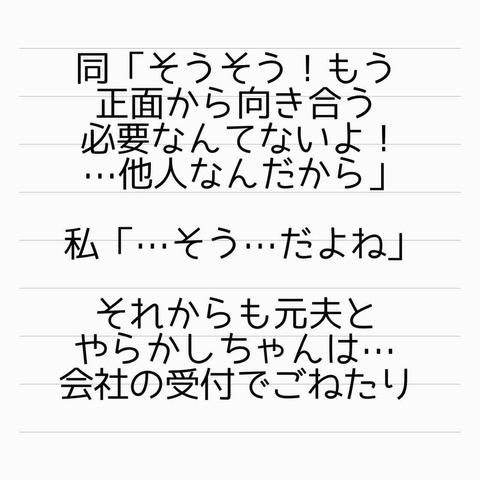 同「そうそう！もう
正面から向き合う
必要なんてないよ！
…他人なんだから」
私「…そう…だよね」
それからも元夫と
やらかしちゃんは…
会社の受付でごねたり